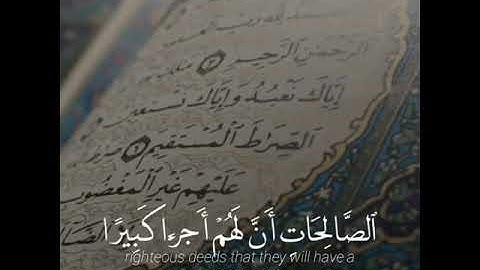 الرَّحْمٰنِ الرَّحِيمِ
إِيَّاكَ نَعْبُدُ وَإِيَّاكَ نَسْتَعِينُ
الصِّرَاطَ الْمُسْتَقِيمَ
عَلَيْهِمْ غَيْرِ الْمَغْضُوبِ
ٱلصَّالِحَاتِ أَنَّ لَهُمْ أَجْرًا كَبِيرًا
righteous deeds that they will have a